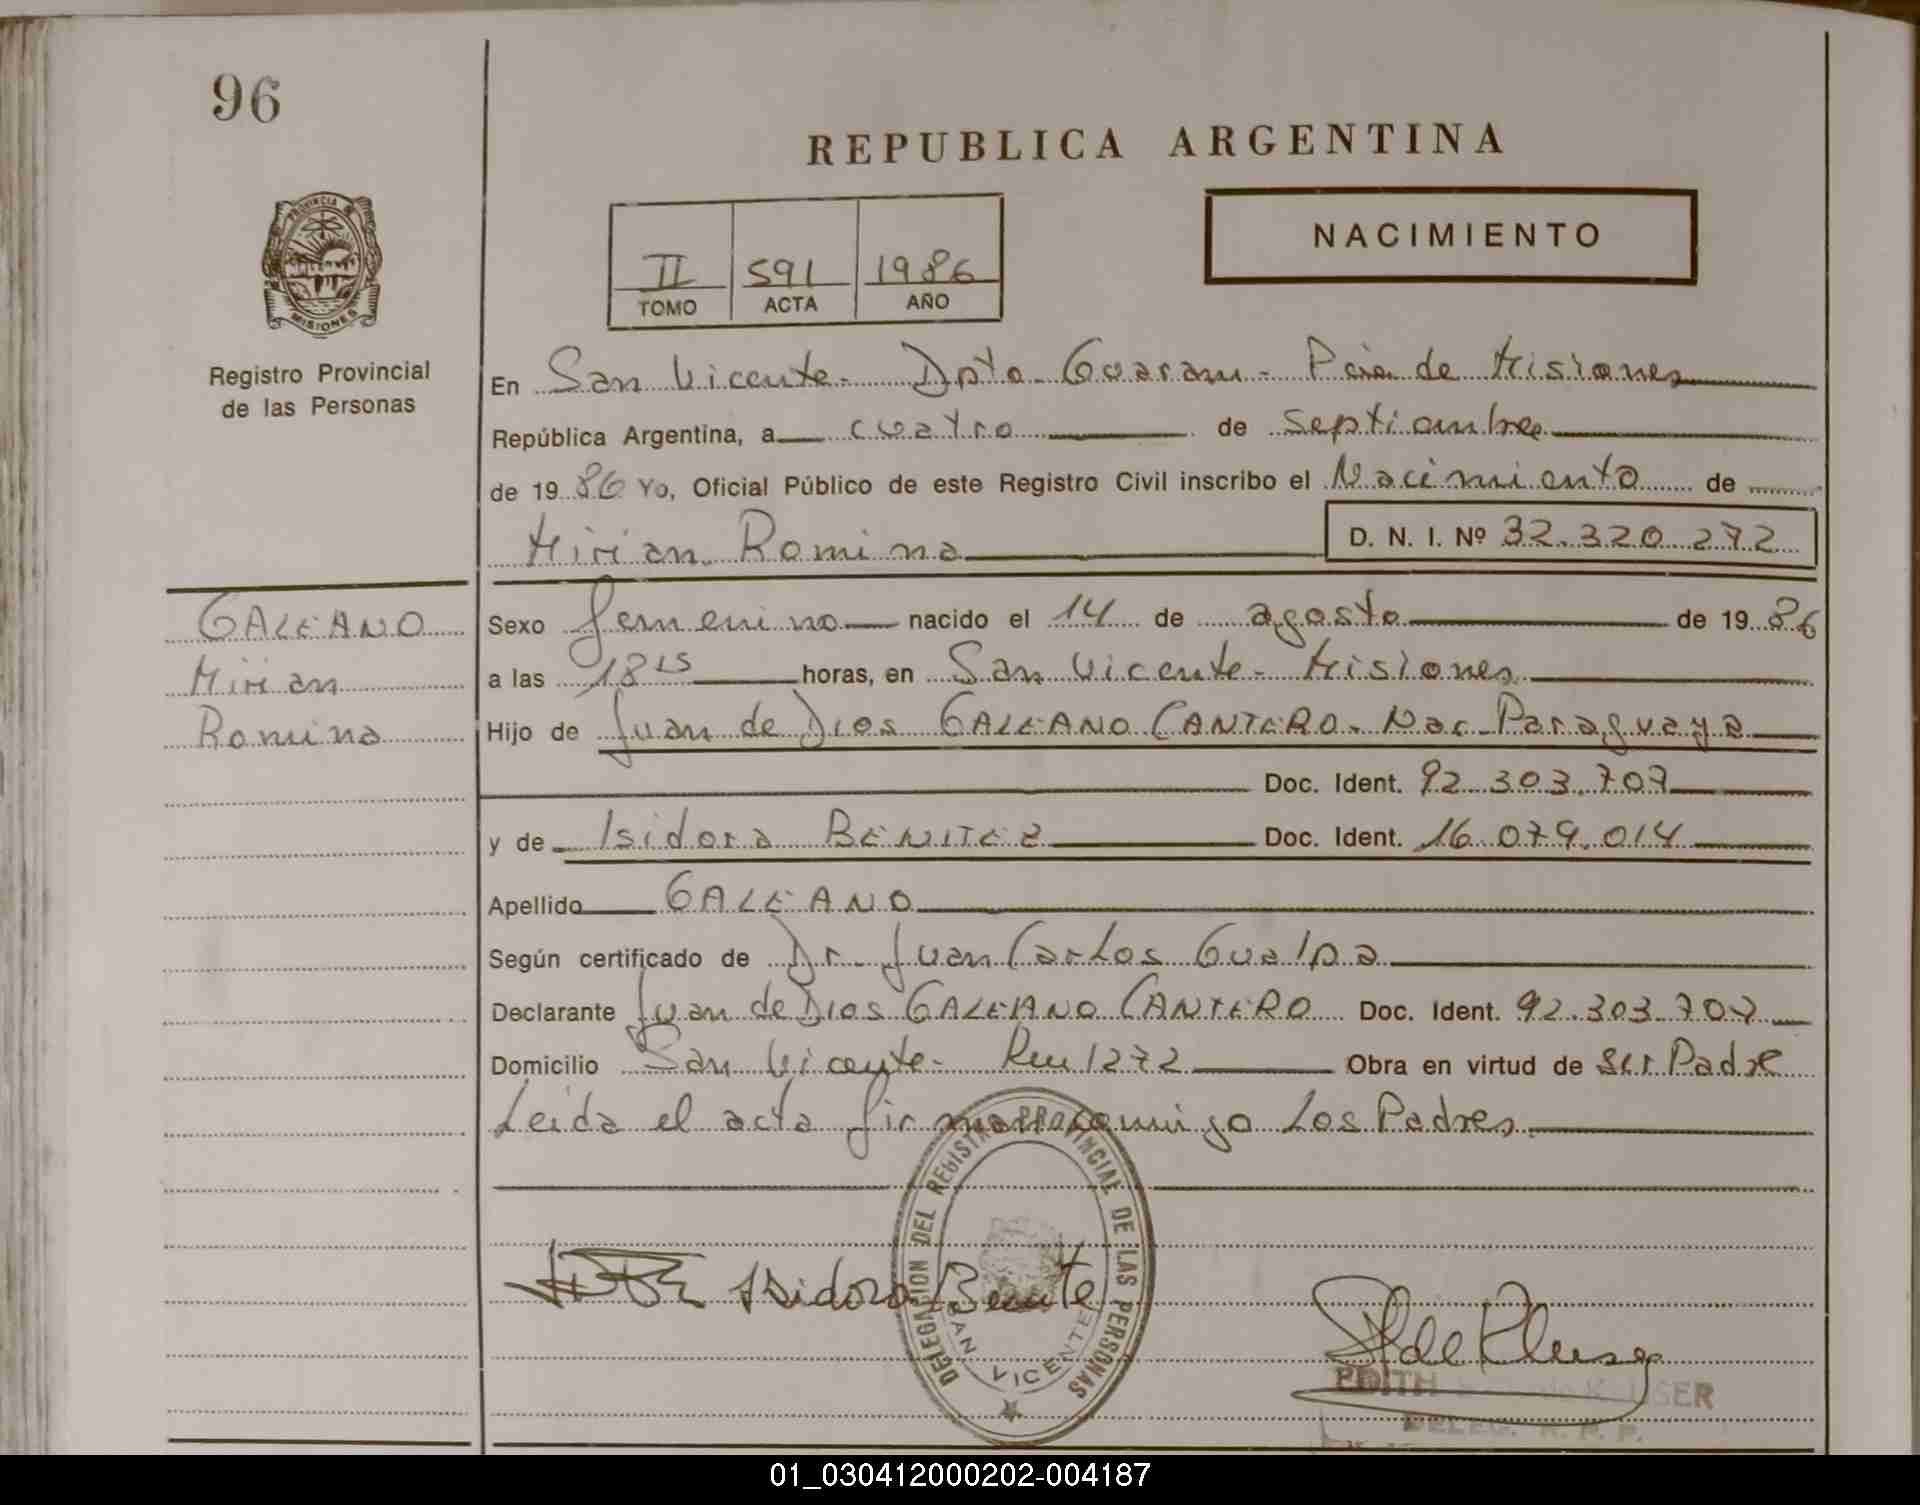 96
REPUBLICA ARGENTINA
NACIMIENTO
II 591 1986
TOMO ACTA AÑO
PROVINCIA DE
MISIONES
Registro Provincial
de las Personas
En San Vicente - Dpto Guarani - Pcia de Misiones
República Argentina, a cuatro de septiembre
de 1986 Yo, Oficial Público de este Registro Civil inscribo el Nacimiento de
Mirian Romina D. N. I. Nº 32.320.272
GALEANO
Mirian
Romina
Sexo femenino nacido el 14 de agosto de 1986
a las 18 15 horas, en San Vicente - Misiones
Hijo de Juan de Dios GALEANO CANTERO - Nac. Paraguaya
Doc. Ident. 92.303.707
y de Isidora BENITEZ Doc. Ident. 16.079.014
Apellido GALEANO
Según certificado de Dr. Juan Carlos Gualpa
Declarante Juan de Dios GALEANO CANTERO Doc. Ident. 92.303.707
Domicilio San Vicente - Km 1272 Obra en virtud de ser Padre
Leida el acta firman conmigo Los Padres
DELEGACION DEL REGISTRO PROVINCIAL DE LAS PERSONAS
SAN VICENTE
Isidora Benite
EDITH
DELEG. R. P. P.
01_030412000202-004187